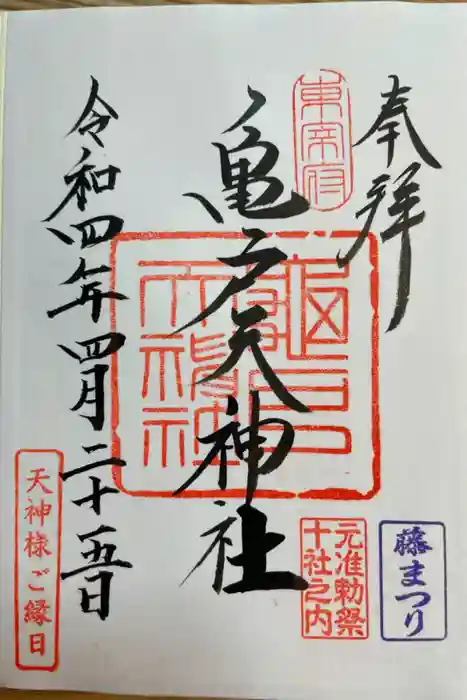 奉拝
東宰府
亀戸天神社
亀戸天神社
令和四年四月二十五日
藤まつり
元准勅祭
十社之内
天神様ご縁日